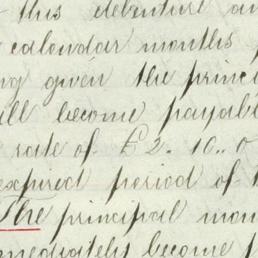 this debenture an
calendar months
ng given the princi
ill become payabl
rate of £2.10..0
expired period of
The principal mon
mediately become p